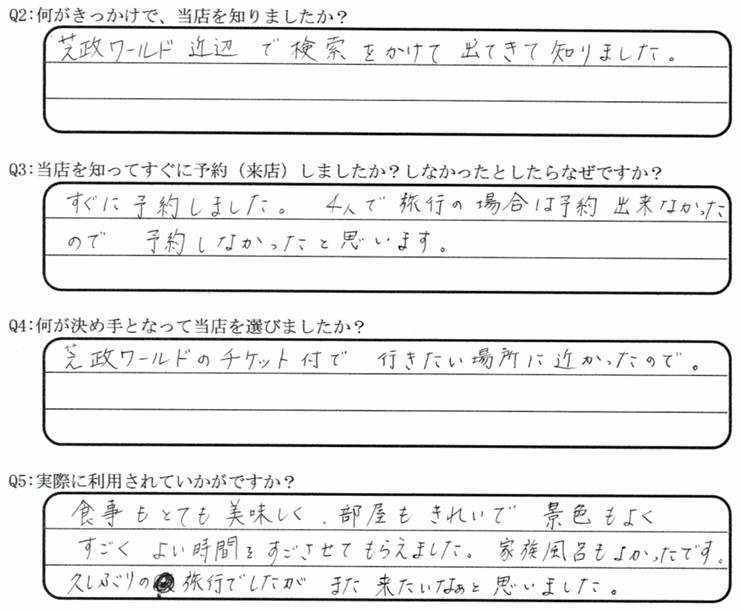 Q2:何がきっかけで、当店を知りましたか？
芝政ワールド 近辺 で 検索 をかけて 出てきて 知りました。
Q3:当店を知ってすぐに予約（来店）しましたか？しなかったとしたらなぜですか？
すぐに 予約しました。 4人で 旅行の 場合は予約 出来なかった
ので 予約しなかったと思います。
Q4:何が決め手となって当店を選びましたか？
芝政ワールドのチケット付で 行きたい場所に近かったので。
Q5:実際に利用されていかがですか？
食事もとても美味しく、部屋もきれいで 景色もよく
すごく よい時間をすごさせてもらえました。家族風呂もよかったです。
久しぶりの 旅行でしたが また来たいなぁと思いました。